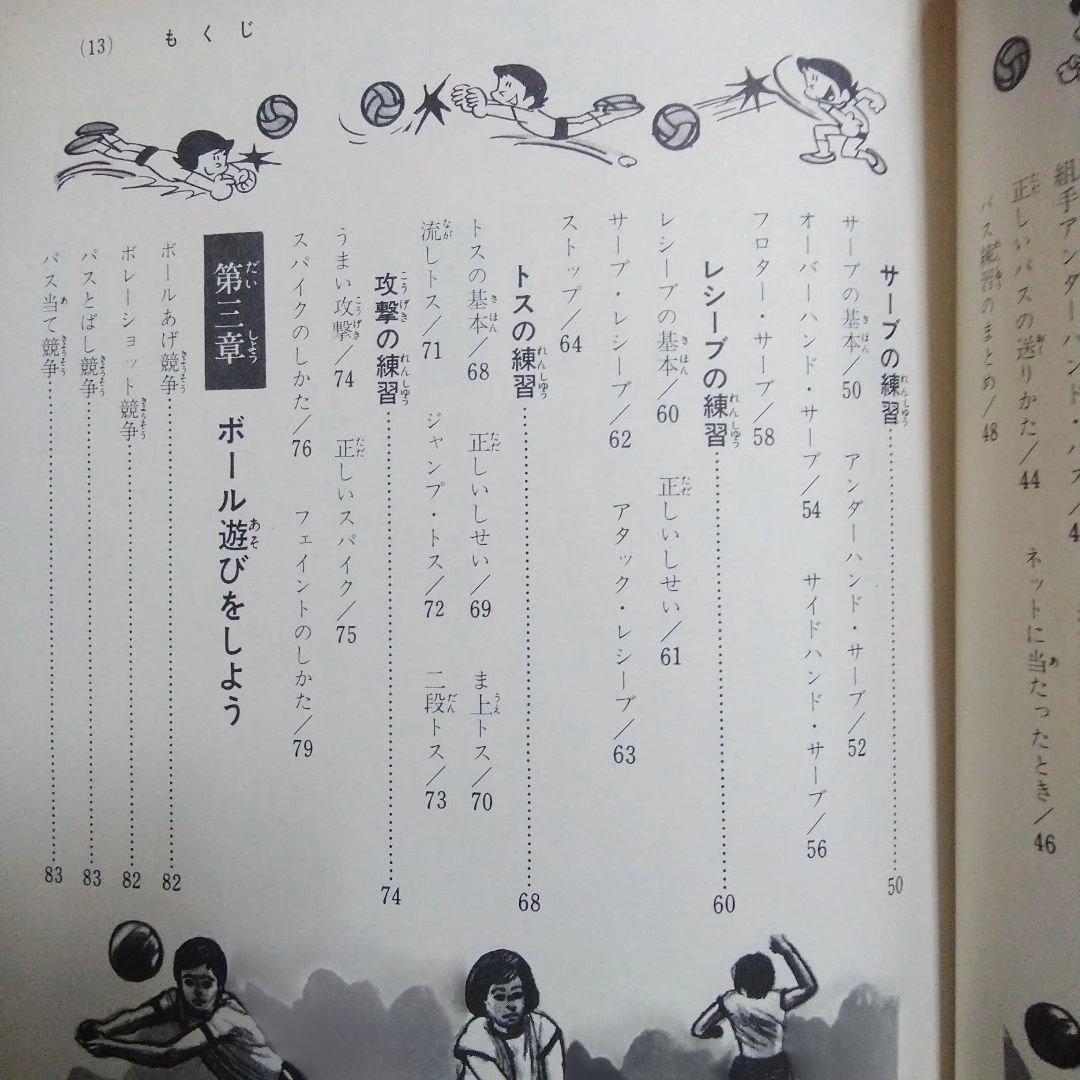 組手アンダーハンド・パス/4
正しいパスの送りかた/44 ネットに当たったとき/46
パス練習のまとめ/48
(13) もくじ
サーブの練習…………50
サーブの基本/50 アンダーハンド・サーブ/52
オーバーハンド・サーブ/54 サイドハンド・サーブ/56
フロター・サーブ/58
レシーブの練習…………60
レシーブの基本/60 正しいしせい/61
サーブ・レシーブ/62 アタック・レシーブ/63
ストップ/64
トスの練習…………68
トスの基本/68 正しいしせい/69 ま上トス/70
流しトス/71 ジャンプ・トス/72 二段トス/73
攻撃の練習…………74
うまい攻撃/74 正しいスパイク/75
スパイクのしかた/76 フェイントのしかた/79
第三章 ボール遊びをしよう
ボールあげ競争…………82
ボレーショット競争…………82
パスとばし競争…………83
パス当て競争…………83